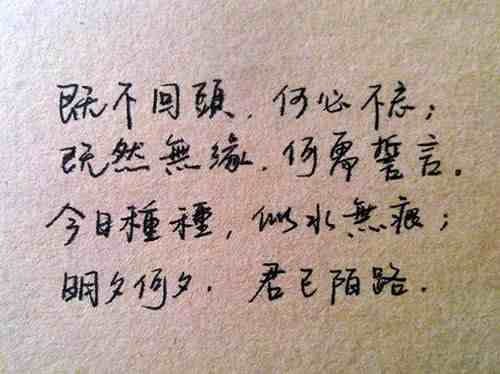 既不回頭，何必不忘；
既然無緣，何需誓言。
今日種種，似水無痕；
明夕何夕，君已陌路．